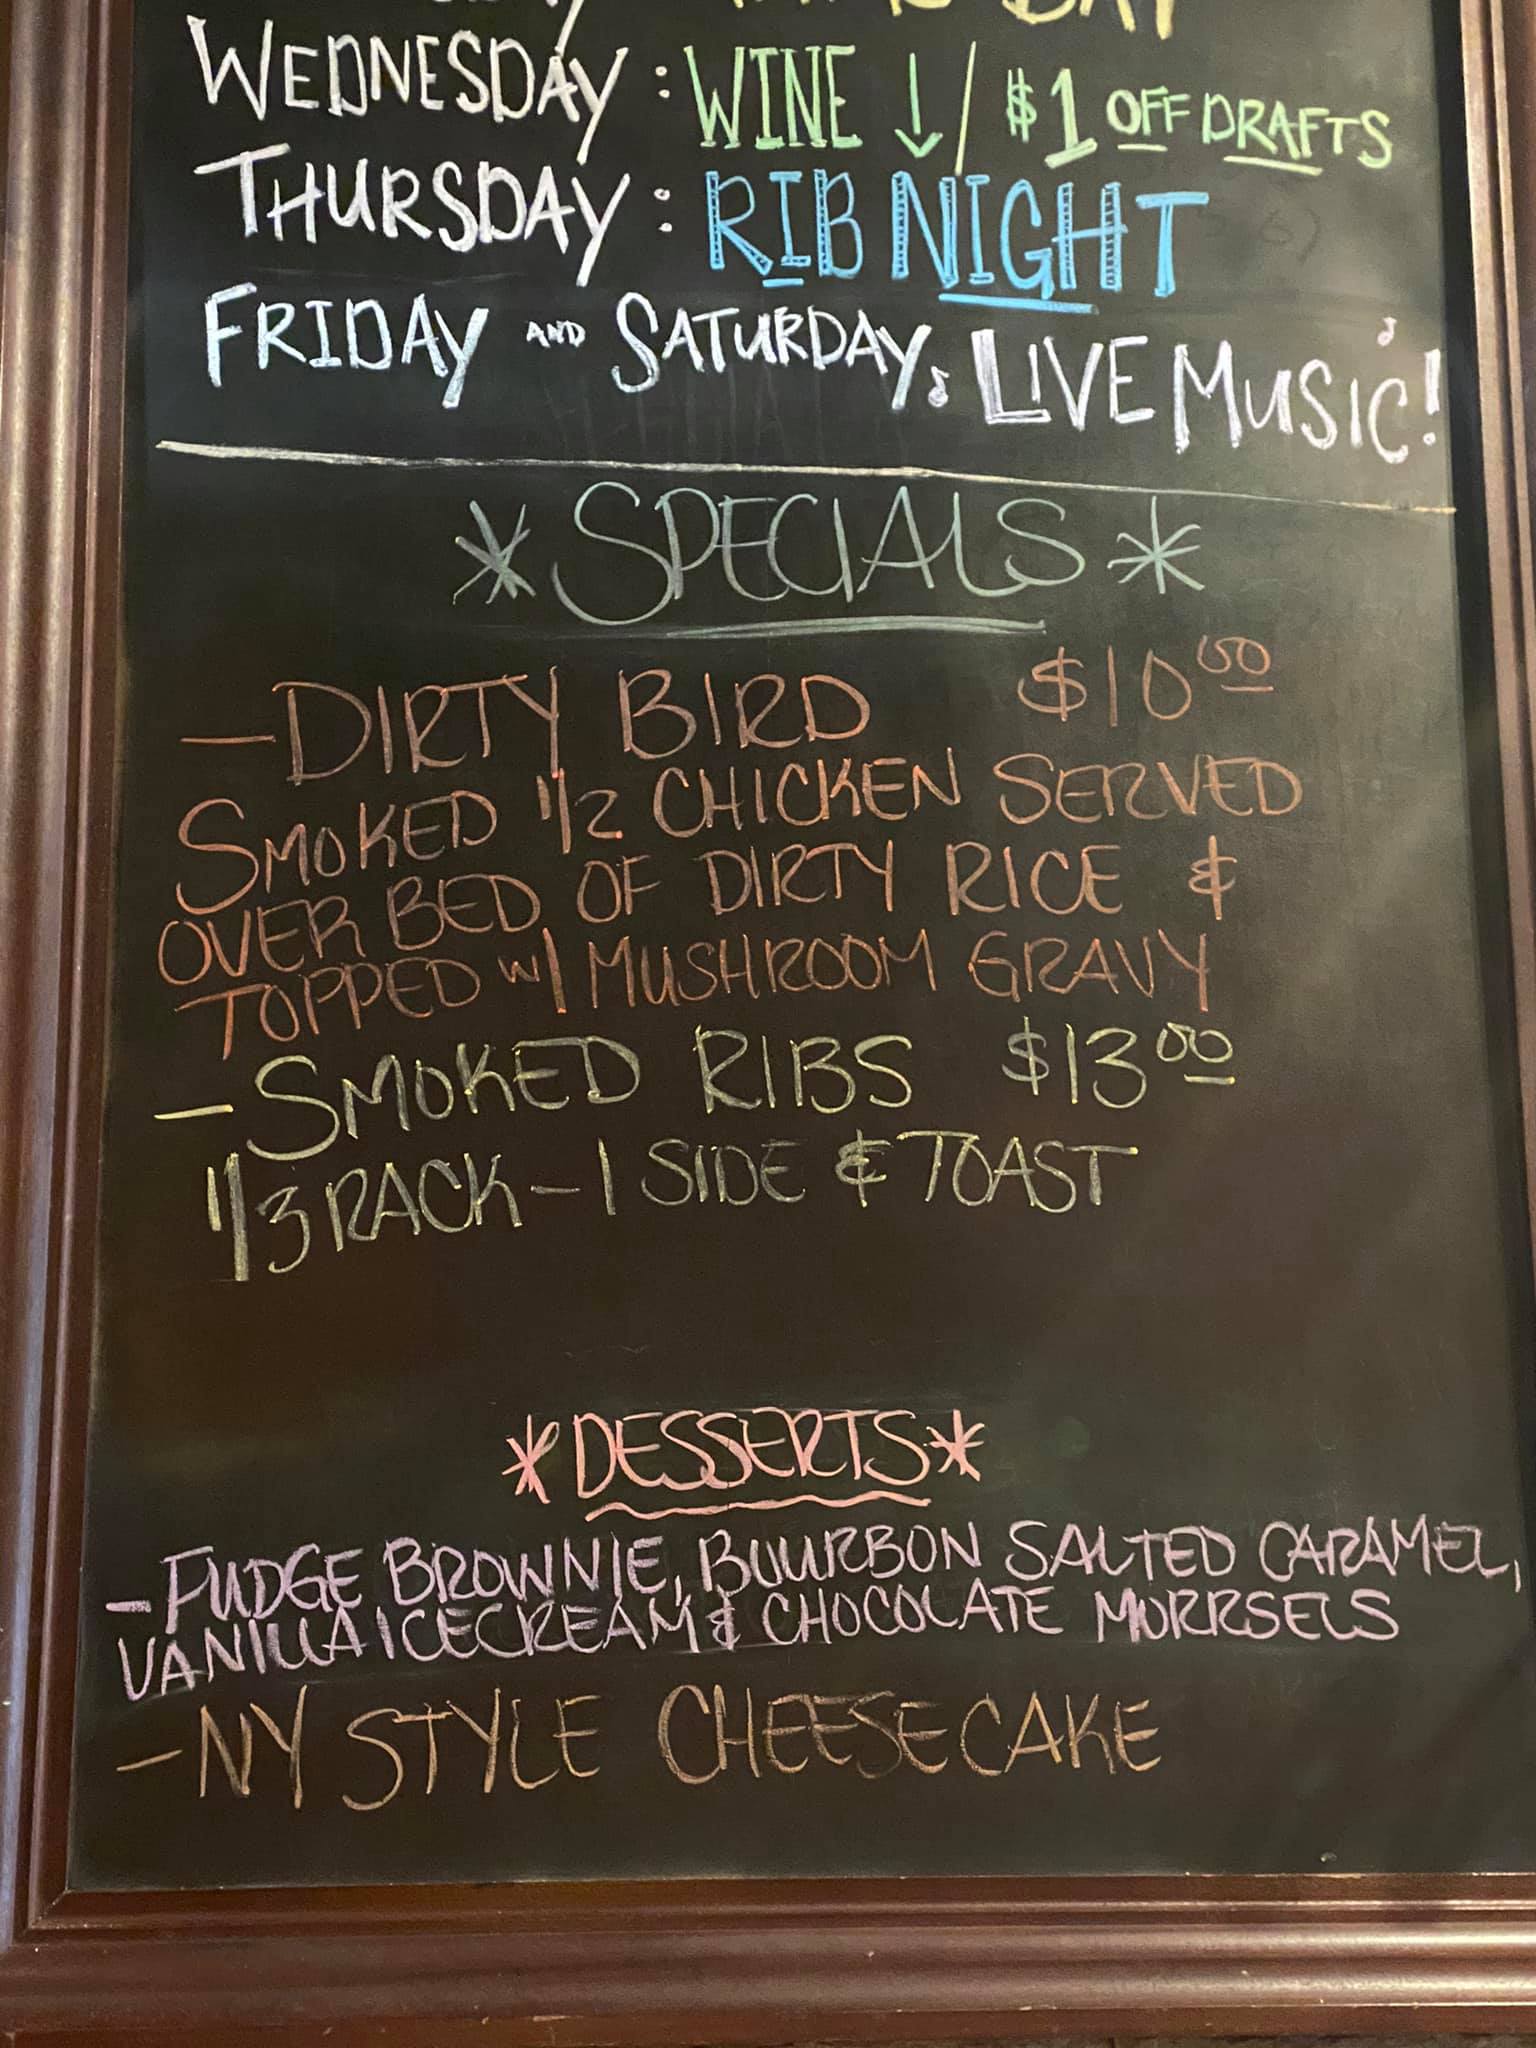 WEDNESDAY: WINE ↓/ $1 OFF DRAFTS
THURSDAY: RIB NIGHT
FRIDAY AND SATURDAY ♪ LIVE MUSIC!
*SPECIALS*
-DIRTY BIRD $10.00
SMOKED 1/2 CHICKEN SERVED
OVER BED OF DIRTY RICE &
TOPPED W/ MUSHROOM GRAVY
-SMOKED RIBS $13.00
1/3 RACK - 1 SIDE & TOAST
*DESSERTS*
-FUDGE BROWNIE, BUURBON SALTED CARAMEL,
VANILLA ICECREAM & CHOCOLATE MORRSELS
-NY STYLE CHEESECAKE